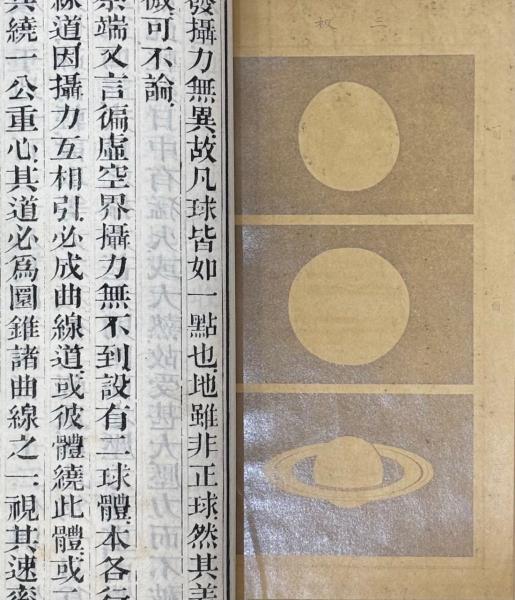 三板
發攝力無異、故凡球皆如一點也、地雖非正球、然其差
微可不論、
奈端又言徧虛空界攝力無不到設有二球體、本各行
線道因攝力互相引、必成曲線道、或彼體繞此體、或二
共繞一公重心、其道必爲圓錐諸曲線之一、視其速率